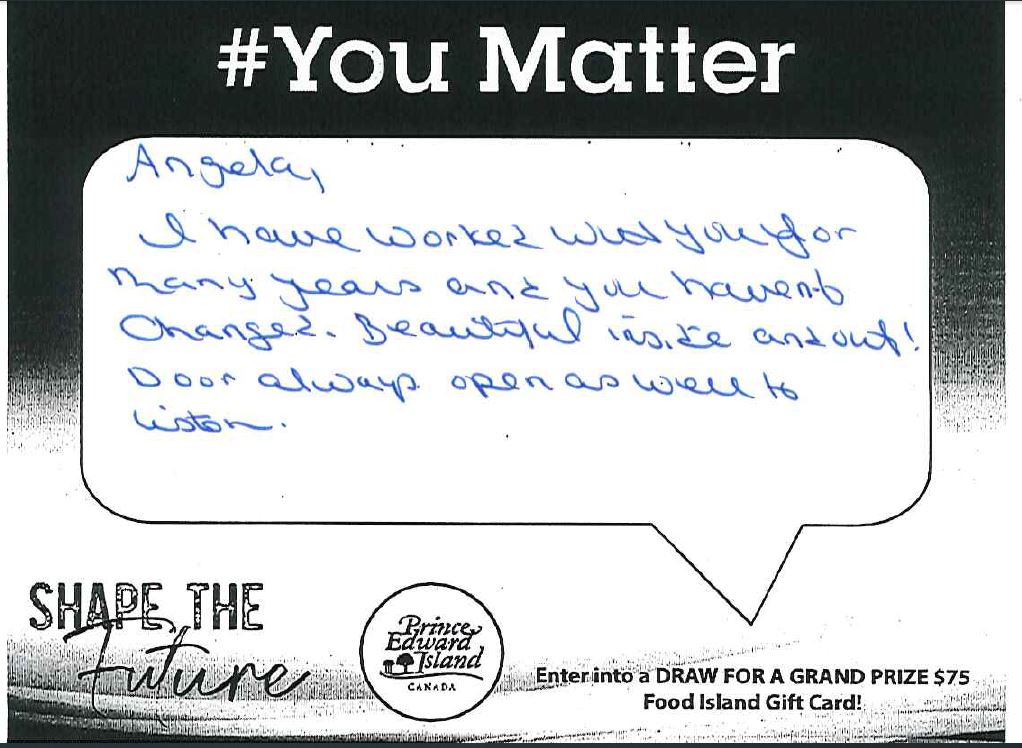 #You Matter
Angela,
I have worked with you for
many years and you haven't
changed. Beautiful inside and out!
Door always open as well to
listen.
SHAPE THE
Future
Prince
Edward
Island
CANADA
Enter into a DRAW FOR A GRAND PRIZE $75
Food Island Gift Card!